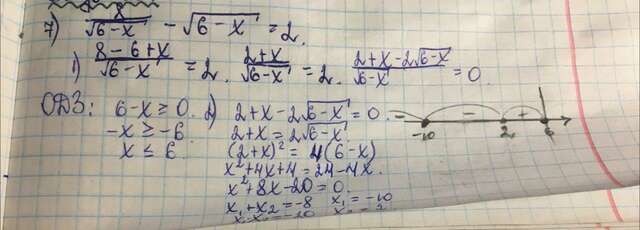 7) 8/√(6-x) - √(6-x) = 2.
1) (8-6+x)/√(6-x) = 2. (2+x)/√(6-x) = 2. (2+x-2√(6-x))/√(6-x) = 0.
ОДЗ: 6-x ≥ 0.
-x ≥ -6
x ≤ 6.
2) 2+x-2√(6-x) = 0.
2+x = 2√(6-x)
(2+x)² = 4(6-x)
x²+4x+4 = 24-4x.
x²+8x-20 = 0.
x₁+x₂ = -8 x₁ = -10
- - +
-10 2 6